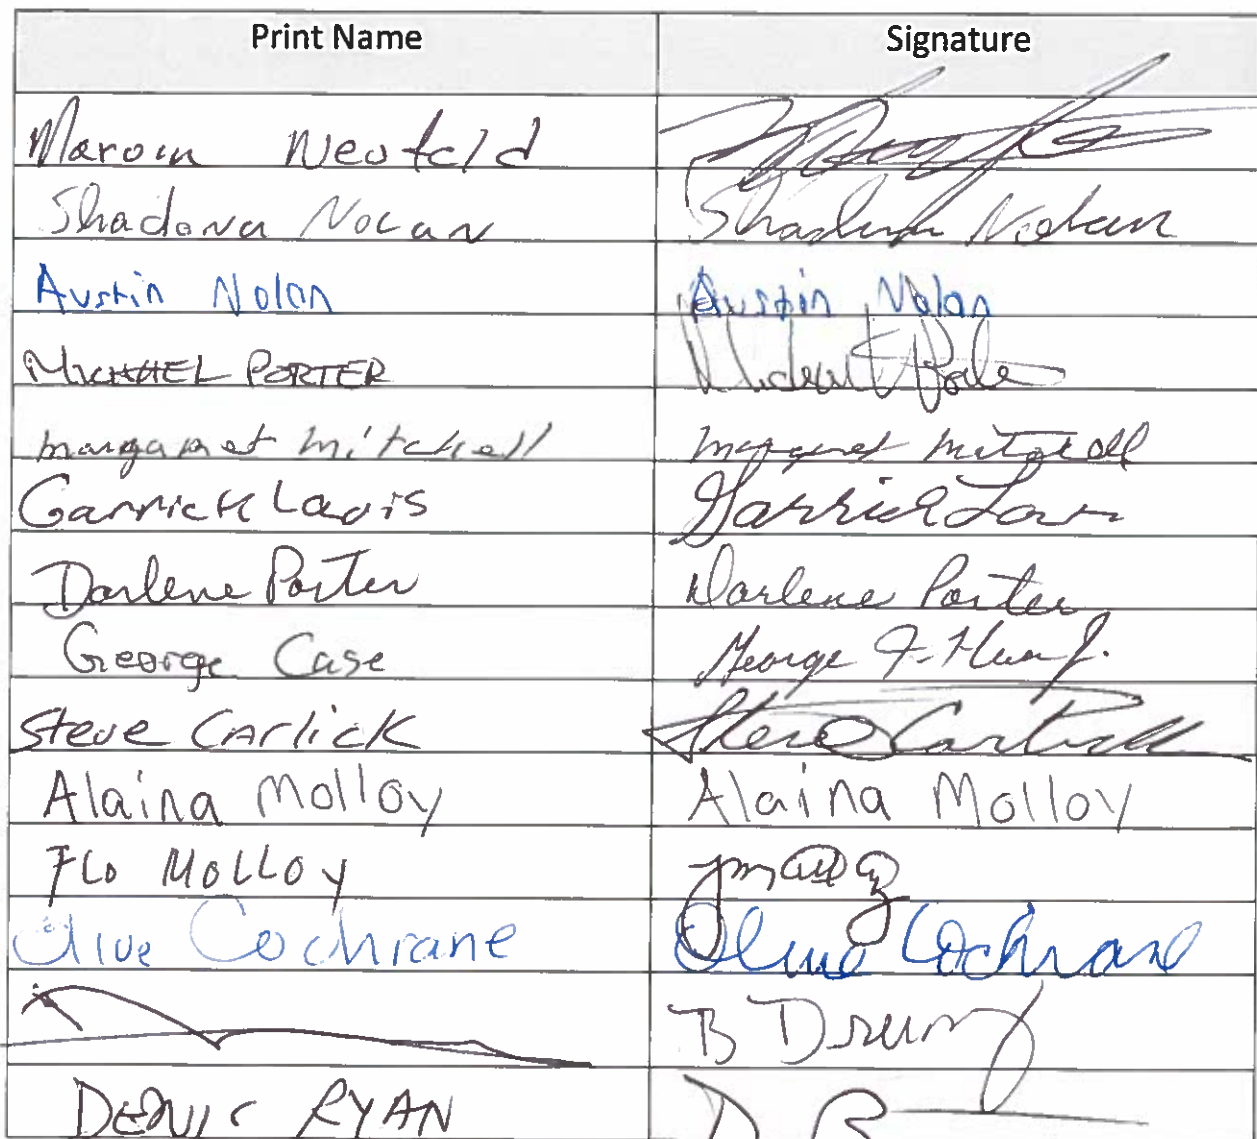 Print Name Signature
Neufeld
Shadona Nolan Nolan
Austin Nolan Austin Nolan
MICHAEL PORTER
Margaret Mitchell Margaret Mitchell
Garrick Louis Garrick
Darlene Porter Darlene Porter
George Case George
Steve Carlick Steve Carlick
Alaina Molloy Alaina Molloy
FLO MOLLOY
Olive Cochrane Olive Cochrane
B Drury
DENIS RYAN